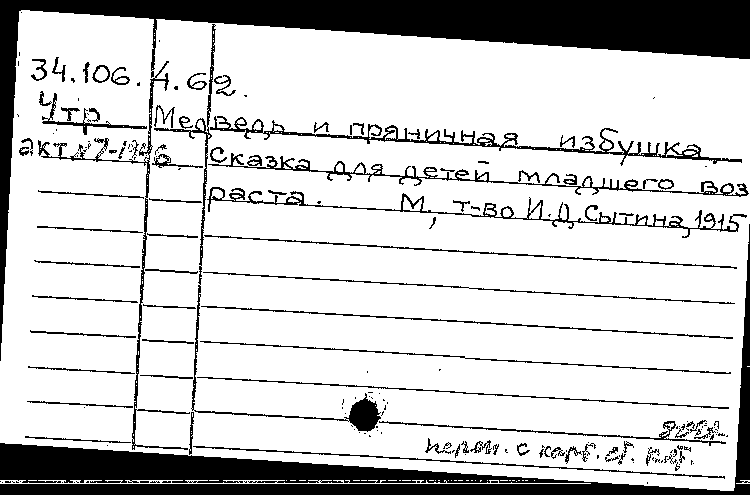 34.106.4.62.
Утр. Медведь и пряничная избушка.
акт №7-1946 Сказка для детей младшего воз
раста. М., т-во И.Д.Сытина, 1915
перем. с карт.